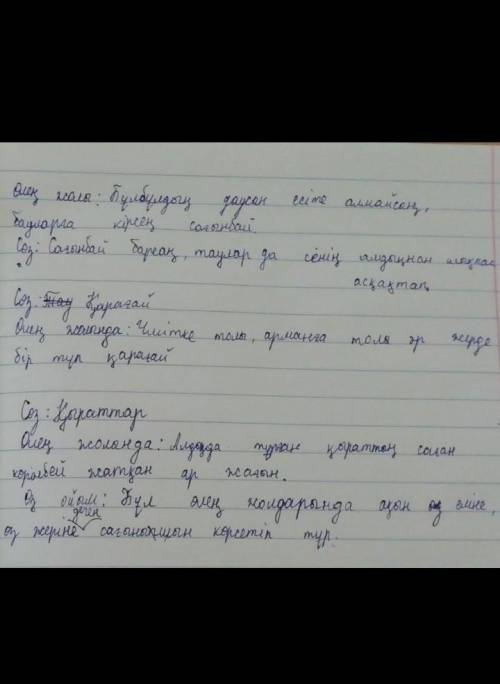 Өлең жолы: Бұлбұлдың даусын есіте алмайсың,
бауларға кірсең сағынбай.
Сөз: Сағынбай барсаң, таулар да сенің алдыңнан шықпас
асқақтап
Сөз: Қарағай
Өлең жолында: Үмітке толы, арманға толы әр жерде
бір түп қарағай
Сөз: Қыраттар
Өлең жолында: Алдыңда тұрған қыраттың саған
көрінбей жатқан ар жағын.
Өз ойым: Бұл өлең жолдарында ақын өз еліне,
өз жеріне деген сағынышын көрсетіп тұр.